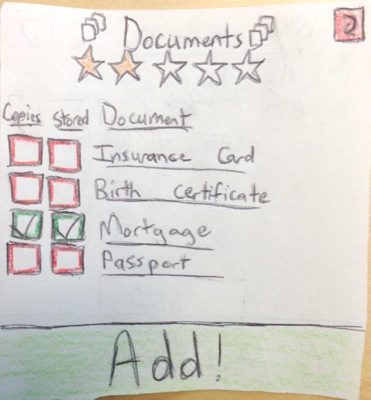 Documents
2
Copies Stored Document
Insurance Card
Birth certificate
Mortgage
Passport
Add!